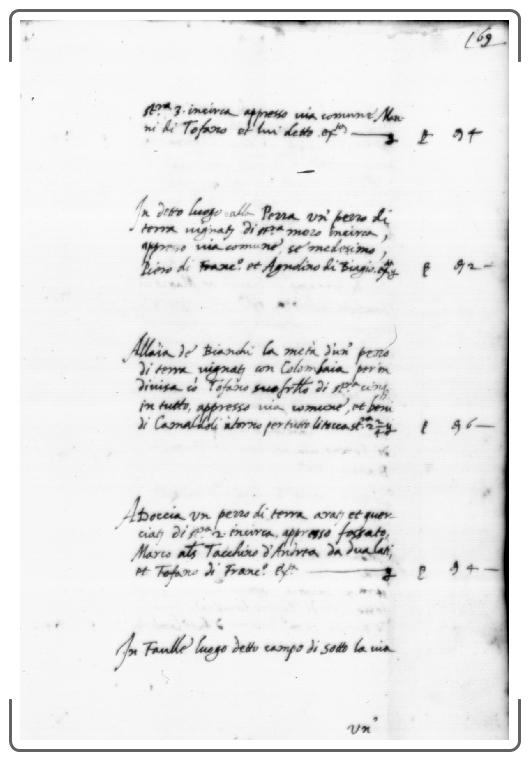 169
st.ra 3 incirca appresso via comune, Man-
ni di Tofano et lui detto
In detto luogo alla Perra un' pezzo di
terra vignati di st.ra mezo incirca,
appresso via comune, se medesimo,
Piero di Franc.o et Agnolino di Biagio 92
Allaia de Bianchi la metà d'un' pezzo
di terra vignati con Colombaia per in
divisa cò Tofano suo frllo di st.ra cinq
in tutto, appresso via comune, et beni
di Camaldoli atorno per tutto li tocca st.ra 2 96
A Doccia un pezzo di terra arati et quer-
ciati di st.ra 2 incirca, appresso fossato,
Marco als Tacchino d'Andrea da dua lati,
et Tofano di Franc.o 94
In Faulle luogo detto campo di sotto la via
un'